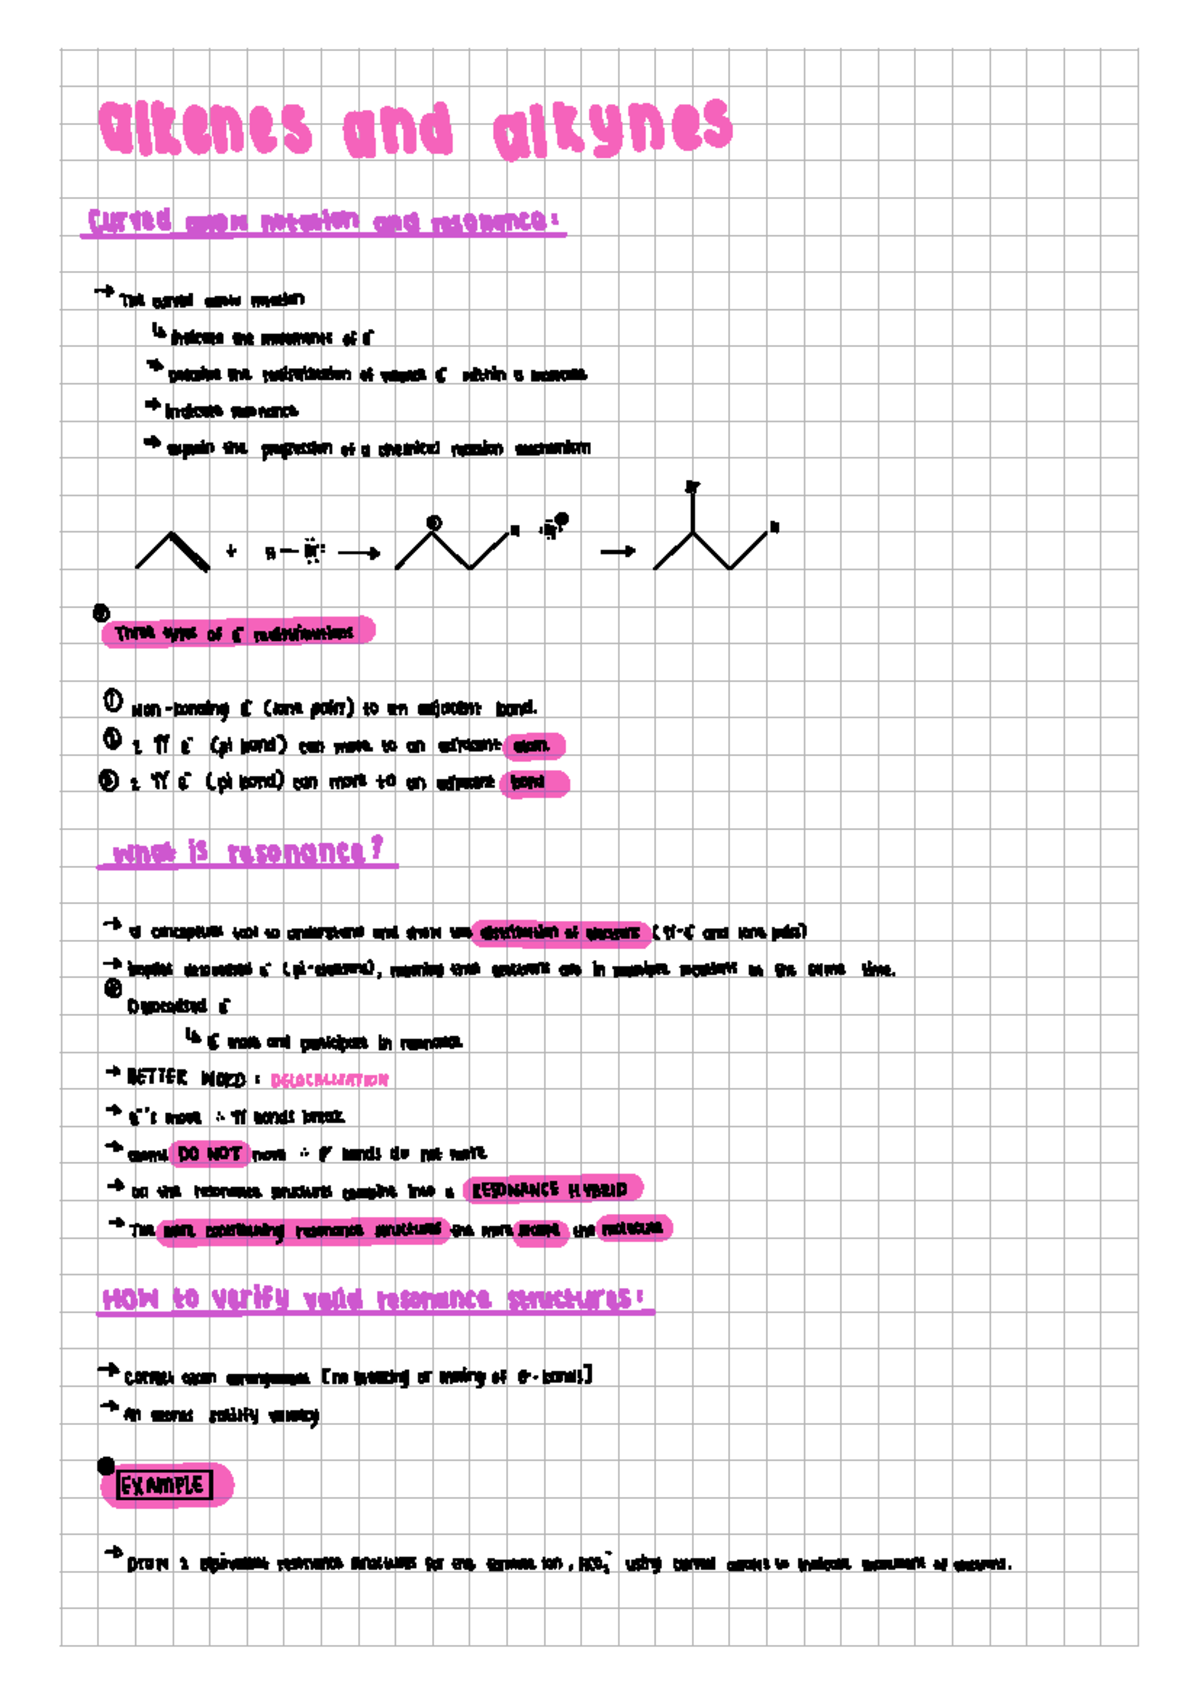 alkenes and alkynes
Curved arrow notation and resonance:
→ The curved arrow notation
↳ indicate the movements of e⁻
→ describe the redistribution of valence e⁻ within a molecule
→ indicate resonance
→ explain the progression of a chemical reaction mechanism
Br
+ H — Br: → ⊕ H :Br: ⊖ → H
Three types of e⁻ redistributions
① Non-bonding e⁻ (lone pair) to an adjacent bond.
② 2 π e⁻ (pi bond) can move to an adjacent atom
③ 2 π e⁻ (pi bond) can move to an adjacent bond
What is resonance?
→ a conceptual tool to understand and show the distribution of electrons (π-e⁻ and lone pairs)
→ implies delocalised e⁻ (pi-electrons), meaning that electrons are in multiple locations at the same time.
Delocalised e⁻
↳ e⁻ move and participate in resonance
→ BETTER WORD: DELOCALISATION
→ e⁻'s move ∴ π bonds break
→ atoms DO NOT move ∴ σ bonds do not
→ all the resonance structures combine into a RESONANCE HYBRID
→ The more contributing resonance structures the more stable the molecule
HOW to verify valid resonance structures:
→ Correct atom arrangement [no breaking or making of σ-bonds!]
→ All atoms satisfy valency
EXAMPLE
→ Draw 2 equivalent resonance structures for the formate ion, HCO₂⁻ using curved arrows to indicate movement of electrons.